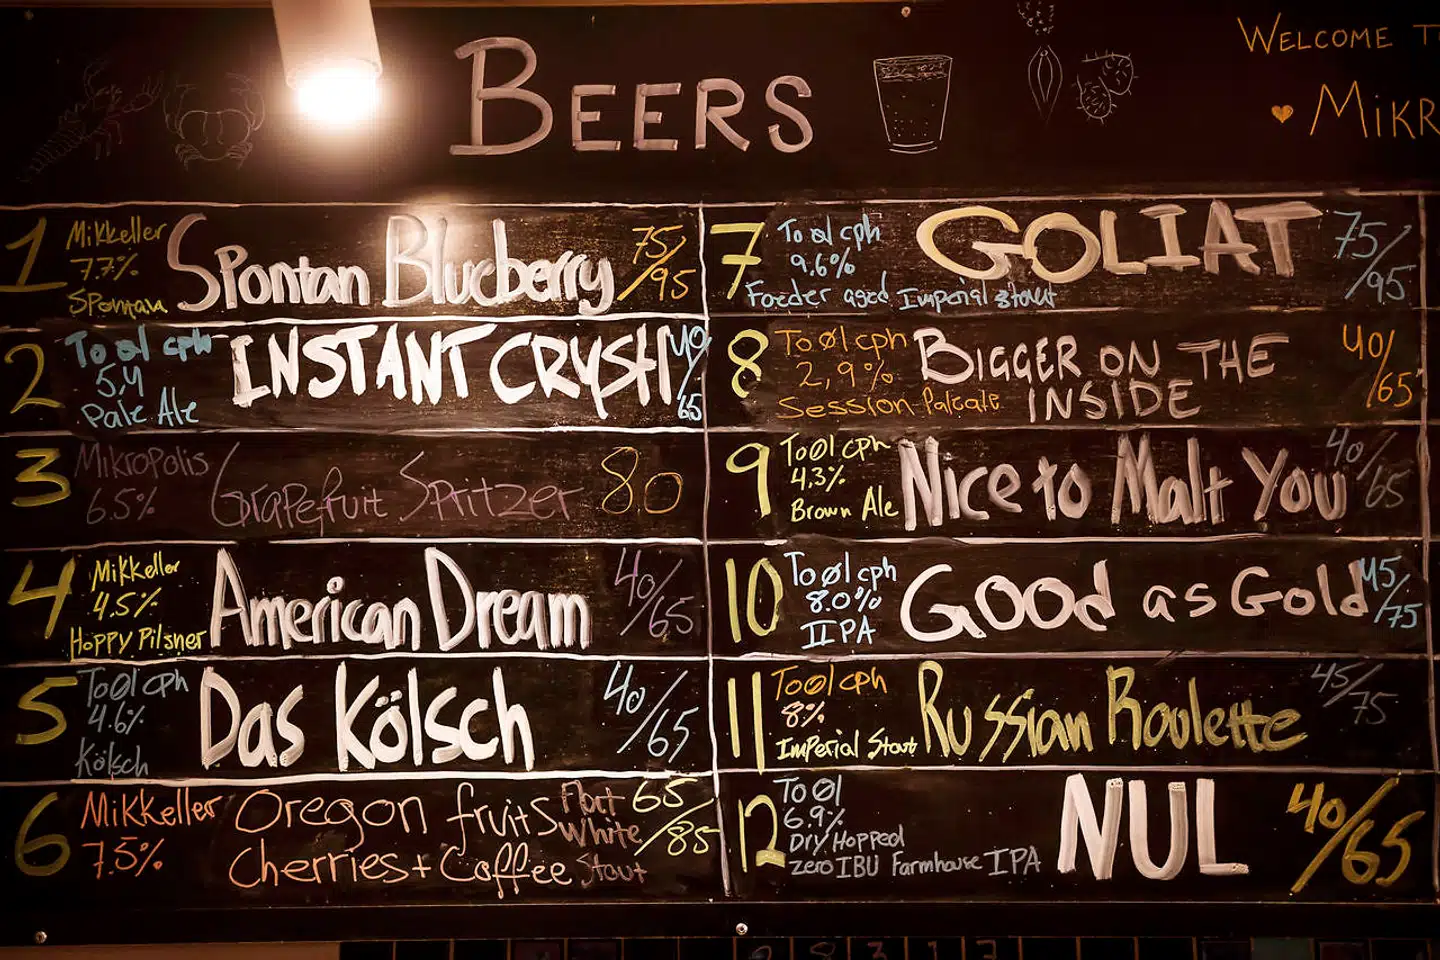 BEERS
WELCOME T
MIKR
1 Mikkeller 7.7% Spontana Spontan Blueberry 75/95
2 To øl cph 5,4 Pale Ale INSTANT CRUSH 40/65
3 Mikropolis 6.5% Grapefruit Spritzer 80
4 Mikkeller 4.5% Hoppy Pilsner American Dream 40/65
5 To Øl cph 4.6% Kölsch Das Kölsch 40/65
6 Mikkeller 7.5% Oregon fruits Cherries + Coffee Flat White Stout 65/85
7 To øl cph 9.6% Foeder aged Imperial stout GOLIAT 75/95
8 To Øl cph 2,9% Session Paleale BIGGER ON THE INSIDE 40/65
9 To Øl cph 4.3% Brown Ale Nice to Malt You 40/65
10 To Øl cph 8.0% IIPA Good as Gold 45/75
11 To Øl cph 8% Imperial Stout Russian Roulette 45/75
12 To Øl 6.9% Dry Hopped zero IBU Farmhouse IPA NUL 40/65